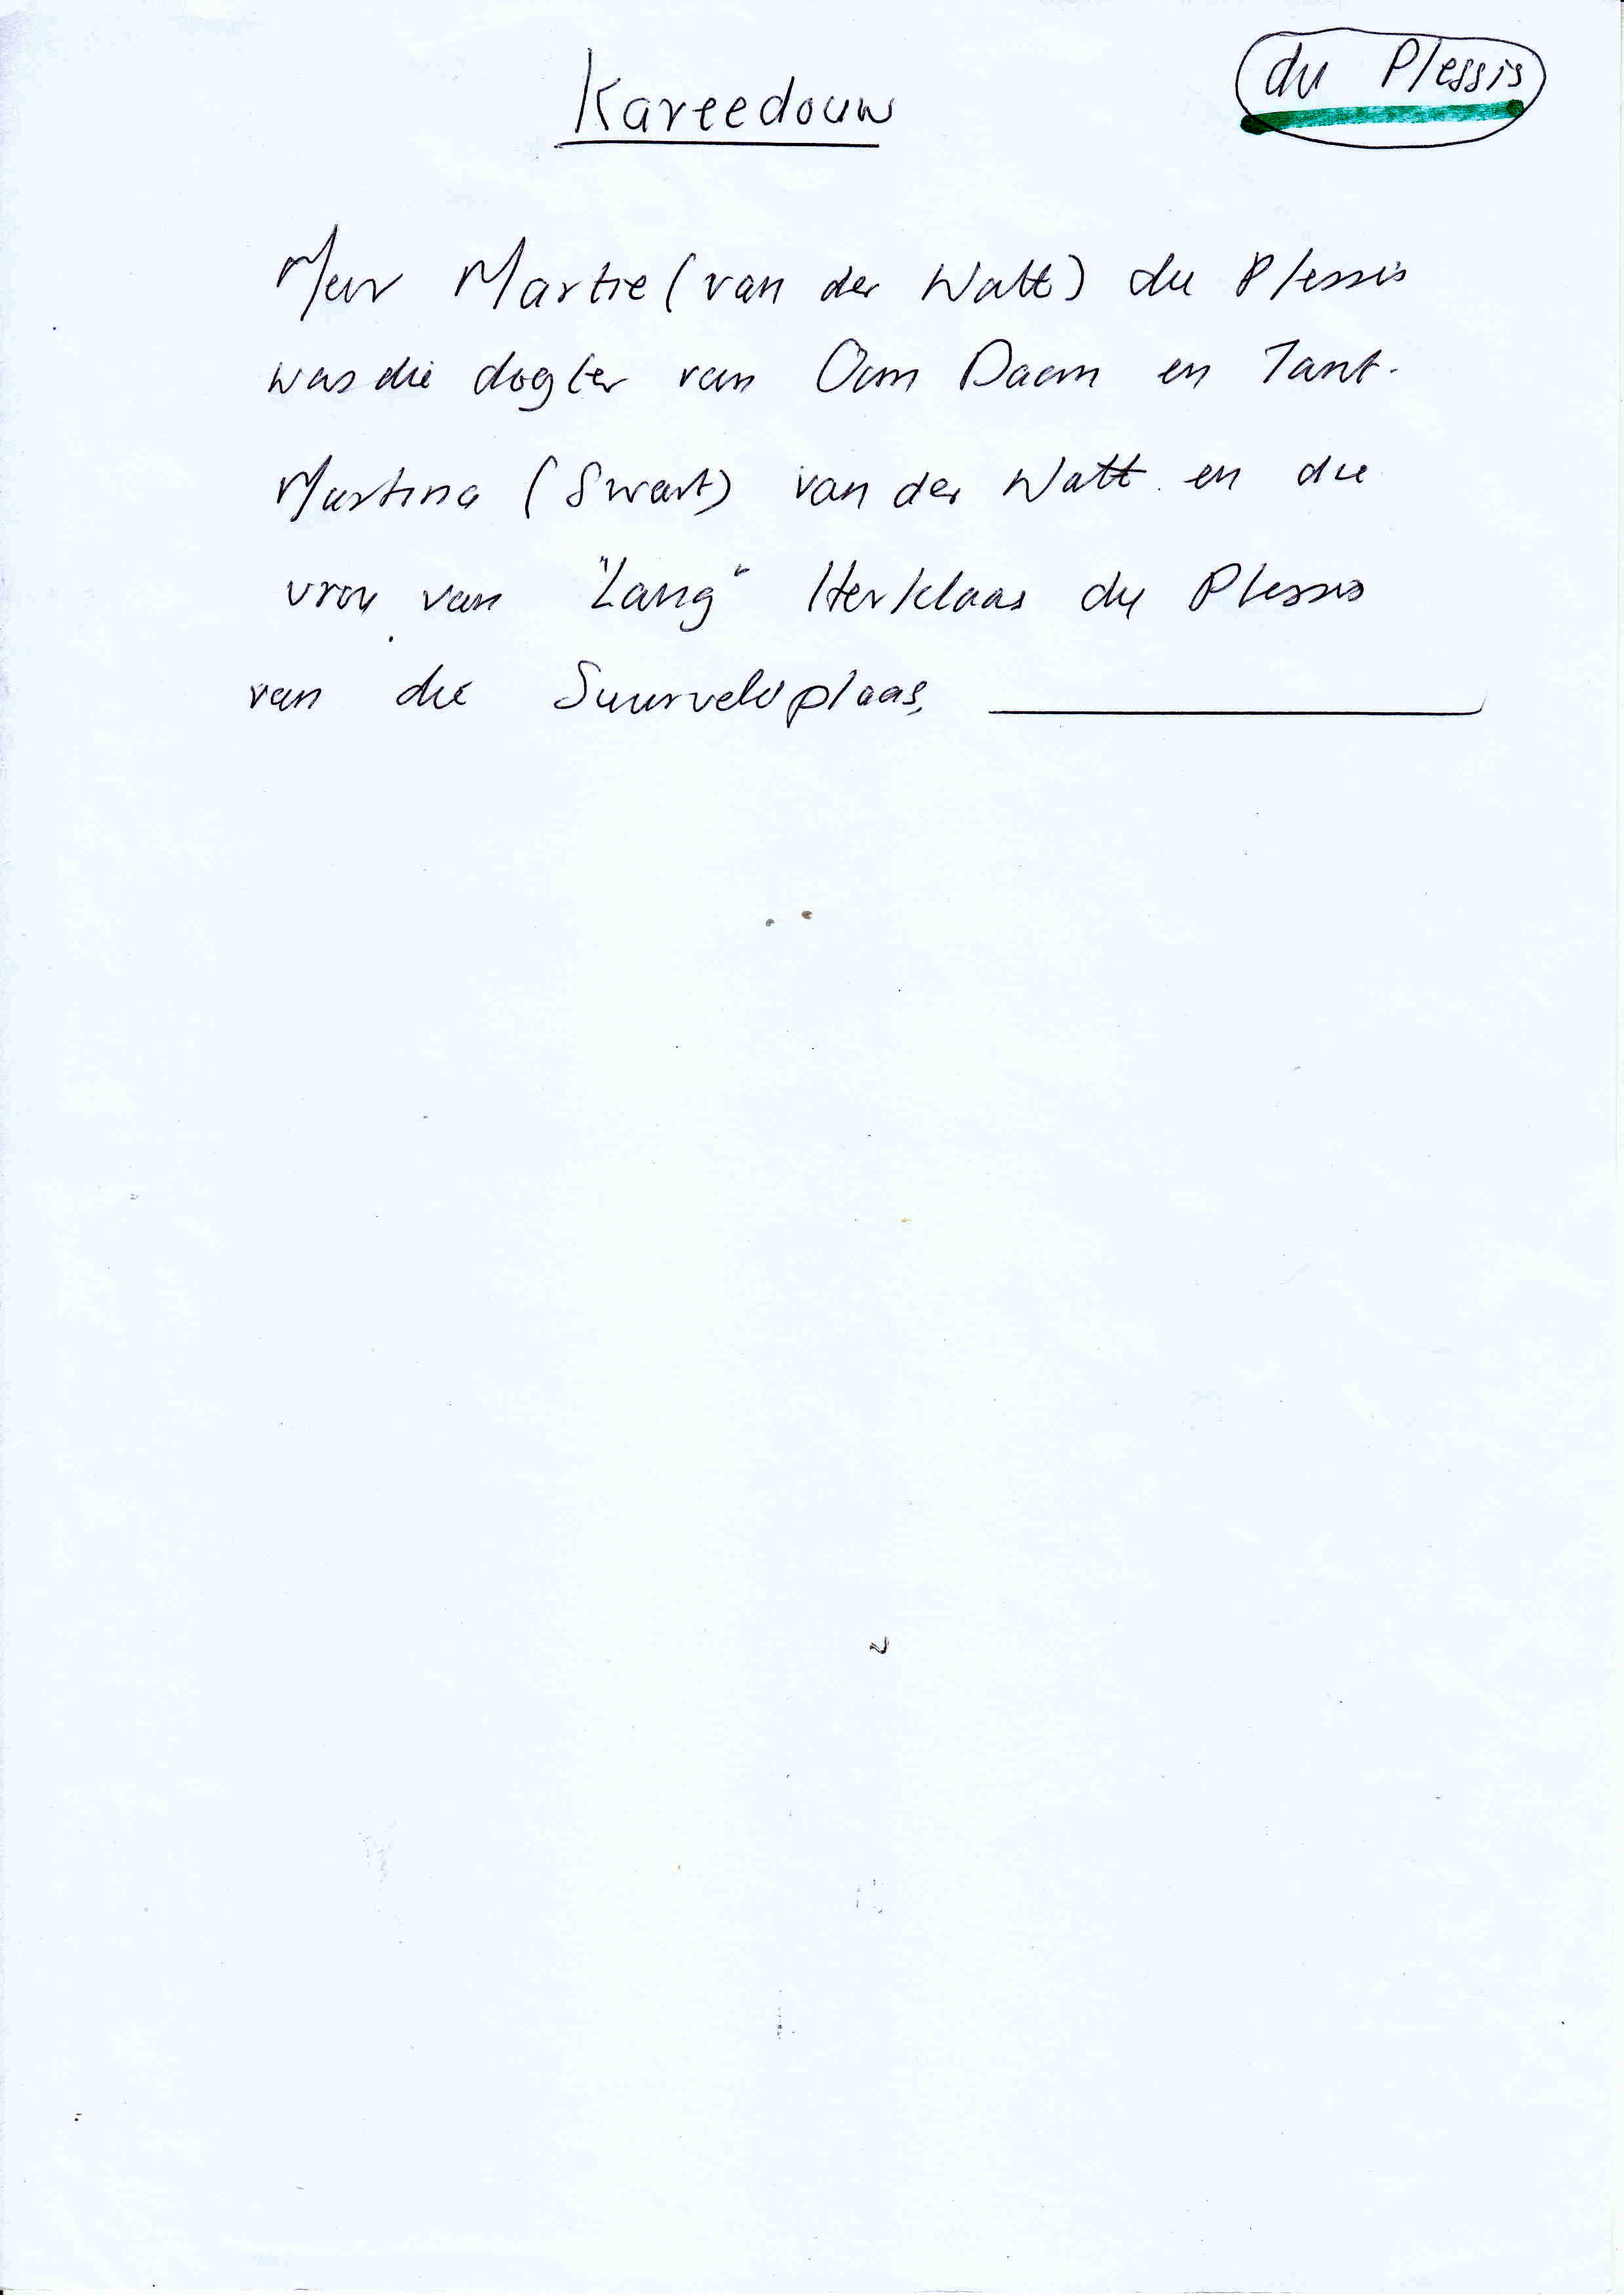 Kareedouw
du Plessis
Mev Martie (van der Watt) du Plessis
was die dogter van Oom Daan en Tant.
Martina (Swart) van der Watt en die
vrou van "Lang" Herklaas du Plessis
van die Suurveld plaas, ____________